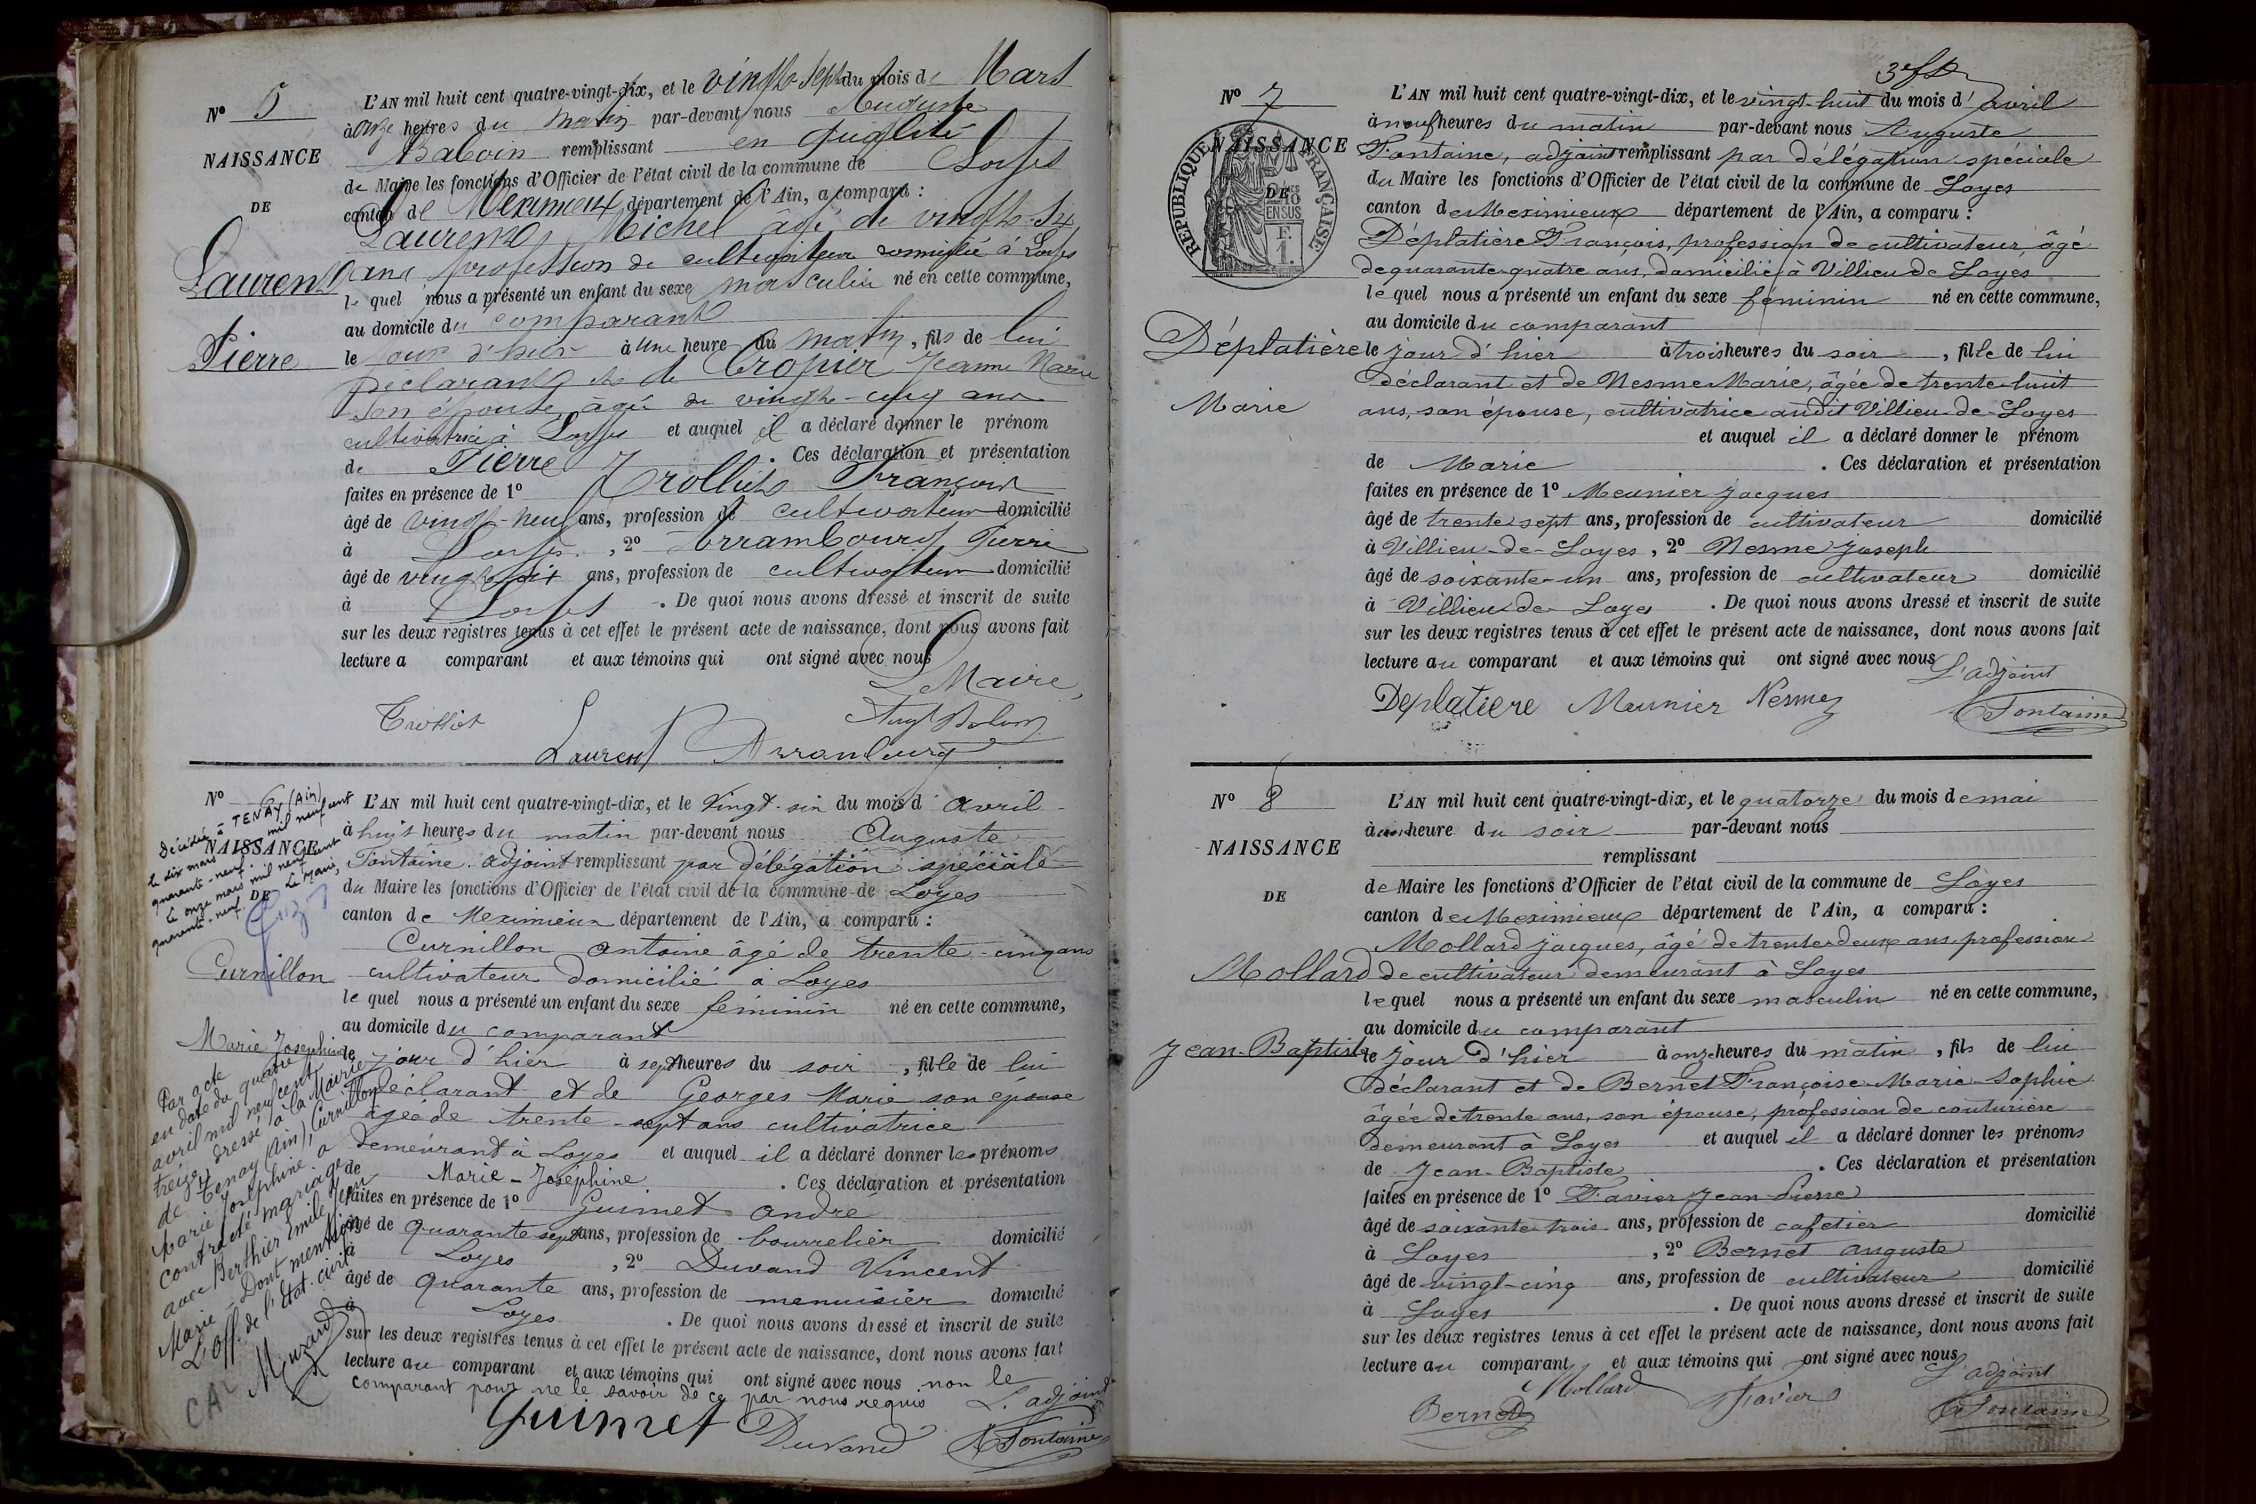 N° 5
NAISSANCE
DE
Laurent
Pierre
L'AN mil huit cent quatre-vingt-dix, et le vingt sept du mois de Mars
à onze heures du matin par-devant nous Auguste
Baboin remplissant en qualité
de Maire les fonctions d'Officier de l'état civil de la commune de Loyes
canton de Meximieux département de l'Ain, a comparu :
Laurent Michel âgé de vingt-six
ans profession de cultivateur domicilié à Loyes
lequel nous a présenté un enfant du sexe masculin né en cette commune,
au domicile du comparant
le jour d'hier à une heure du matin, fils de lui
déclarant et de Cropier Jeanne Marie
son épouse âgée de vingt-cinq ans
cultivatrice à Loyes et auquel il a déclaré donner le prénom
de Pierre. Ces déclaration et présentation
faites en présence de 1° Trolliet François
âgé de vingt-neuf ans, profession de cultivateur domicilié
à Loyes, 2° Arrambourg Pierre
âgé de vingt six ans, profession de cultivateur domicilié
à Loyes. De quoi nous avons dressé et inscrit de suite
sur les deux registres tenus à cet effet le présent acte de naissance, dont nous avons fait
lecture a comparant et aux témoins qui ont signé avec nous
Le Maire,
Trolliet Aug Baboin
Laurent Arrambourg
N° 6
NAISSANCE
DE
Décédée à TENAY (Ain)
le dix mars mil neuf cent
quarante-neuf.
Le onze mars mil neuf cent
quarante-neuf. Le Maire,
Curnillon
Marie Josephine
Par acte
en date du quatre
avril mil neuf cent
treize, dressé à la Mairie
de Tenay (Ain), Curnillon
Marie Joséphine a
contracté mariage
avec Berthier Emile Jean
Marie. Dont mention
L'Off. de l'état civil
L'AN mil huit cent quatre-vingt-dix, et le vingt-six du mois d'avril
à huit heures du matin par-devant nous Auguste
Fontaine adjoint remplissant par délégation spéciale
du Maire les fonctions d'Officier de l'état civil de la commune de Loyes
canton de Meximieux département de l'Ain, a comparu :
Curnillon antoine âgé de trente-cinq ans
cultivateur domicilié à Loyes
lequel nous a présenté un enfant du sexe féminin né en cette commune,
au domicile du comparant
le jour d'hier à sept heures du soir, fille de lui
déclarant et de Georges Marie son épouse
âgée de trente-sept ans cultivatrice
demeurant à Loyes et auquel il a déclaré donner les prénoms
de Marie-Joséphine. Ces déclaration et présentation
faites en présence de 1° Guimet andré
âgé de quarante sept ans, profession de bourrelier domicilié
à Loyes, 2° Durand Vincent
âgé de quarante ans, profession de menuisier domicilié
à Loyes. De quoi nous avons dressé et inscrit de suite
sur les deux registres tenus à cet effet le présent acte de naissance, dont nous avons fait
lecture au comparant et aux témoins qui ont signé avec nous non le
comparant pour ne le savoir de ce par nous requis
L'adjoint
Guimet Durand A Fontaine
N° 7
NAISSANCE
DE
RÉPUBLIQUE FRANÇAISE
Déplatière
Marie
L'AN mil huit cent quatre-vingt-dix, et le vingt-huit du mois d'avril
à neuf heures du matin par-devant nous Auguste
Fontaine, adjoint remplissant par délégation spéciale
du Maire les fonctions d'Officier de l'état civil de la commune de Loyes
canton de Meximieux département de l'Ain, a comparu :
Déplatière François, profession de cultivateur âgé
de quarante-quatre ans, domicilié à Villieu de Loyes
lequel nous a présenté un enfant du sexe féminin né en cette commune,
au domicile du comparant
le jour d'hier à trois heures du soir, fille de lui
déclarant et de Nesme Marie, âgée de trente-huit
ans, son épouse, cultivatrice audit Villieu-de-Loyes
et auquel il a déclaré donner le prénom
de Marie. Ces déclaration et présentation
faites en présence de 1° Meunier Jacques
âgé de trente sept ans, profession de cultivateur domicilié
à Villieu-de-Loyes, 2° Nesme Joseph
âgé de soixante-un ans, profession de cultivateur domicilié
à Villieu de Loyes. De quoi nous avons dressé et inscrit de suite
sur les deux registres tenus à cet effet le présent acte de naissance, dont nous avons fait
lecture au comparant et aux témoins qui ont signé avec nous
L'adjoint
Deplatiere Meunier Nesme A Fontaine
N° 8
NAISSANCE
DE
Mollard
Jean-Baptiste
L'AN mil huit cent quatre-vingt-dix, et le quatorze du mois de mai
à une heure du soir par-devant nous
remplissant
de Maire les fonctions d'Officier de l'état civil de la commune de Loyes
canton de Meximieux département de l'Ain, a comparu :
Mollard Jacques, âgé de trente-deux ans profession
de cultivateur demeurant à Loyes
lequel nous a présenté un enfant du sexe masculin né en cette commune,
au domicile du comparant
le jour d'hier à onze heures du matin, fils de lui
déclarant et de Bernet Françoise-Marie-Sophie
âgée de trente ans, son épouse, profession de couturière
demeurant à Loyes et auquel il a déclaré donner les prénoms
de Jean-Baptiste. Ces déclaration et présentation
faites en présence de 1° Favier Jean-Pierre
âgé de soixante-trois ans, profession de cafetier domicilié
à Loyes, 2° Bernet auguste
âgé de vingt-cinq ans, profession de cultivateur domicilié
à Loyes. De quoi nous avons dressé et inscrit de suite
sur les deux registres tenus à cet effet le présent acte de naissance, dont nous avons fait
lecture au comparant et aux témoins qui ont signé avec nous
L'adjoint
Bernet Mollard Favier A Fontaine